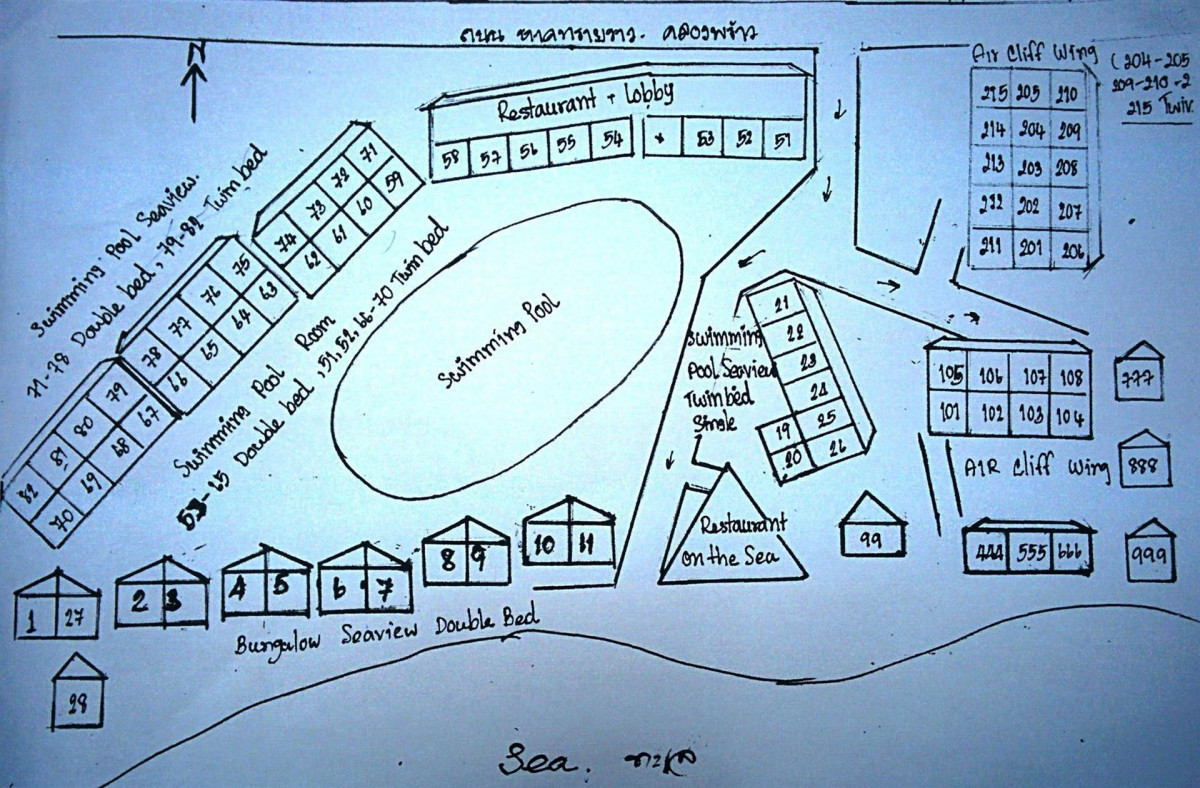 ถนน หาดทรายขาว. คลองพร้าว
N
Air Cliff Wing
(204-205
209-210-2
215 Twin.
215 205 210
214 204 209
213 203 208
212 202 207
211 201 206
Restaurant + Lobby
58 57 56 55 54 * 53 52 51
Swimming Pool Seaview.
71-78 Double bed, 79-82 Twin bed
71
72
73
74
59
60
61
62
75
76
77
78
63
64
65
66
79
80
81
82
67
68
69
70
Swimming Pool Room
53-65 Double bed, 51, 52, 66-70 Twin bed
Swimming Pool
Swimming
Pool Seaview
Twin bed
Single
21
22
23
24
19 25
20 26
105 106 107 108
101 102 103 104
AIR Cliff Wing
777
888
999
444 555 666
99
Restaurant
on the Sea
1 27
2 3
4 5
6 7
8 9
10 11
28
Bungalow Seaview Double Bed
Sea. ทะเล